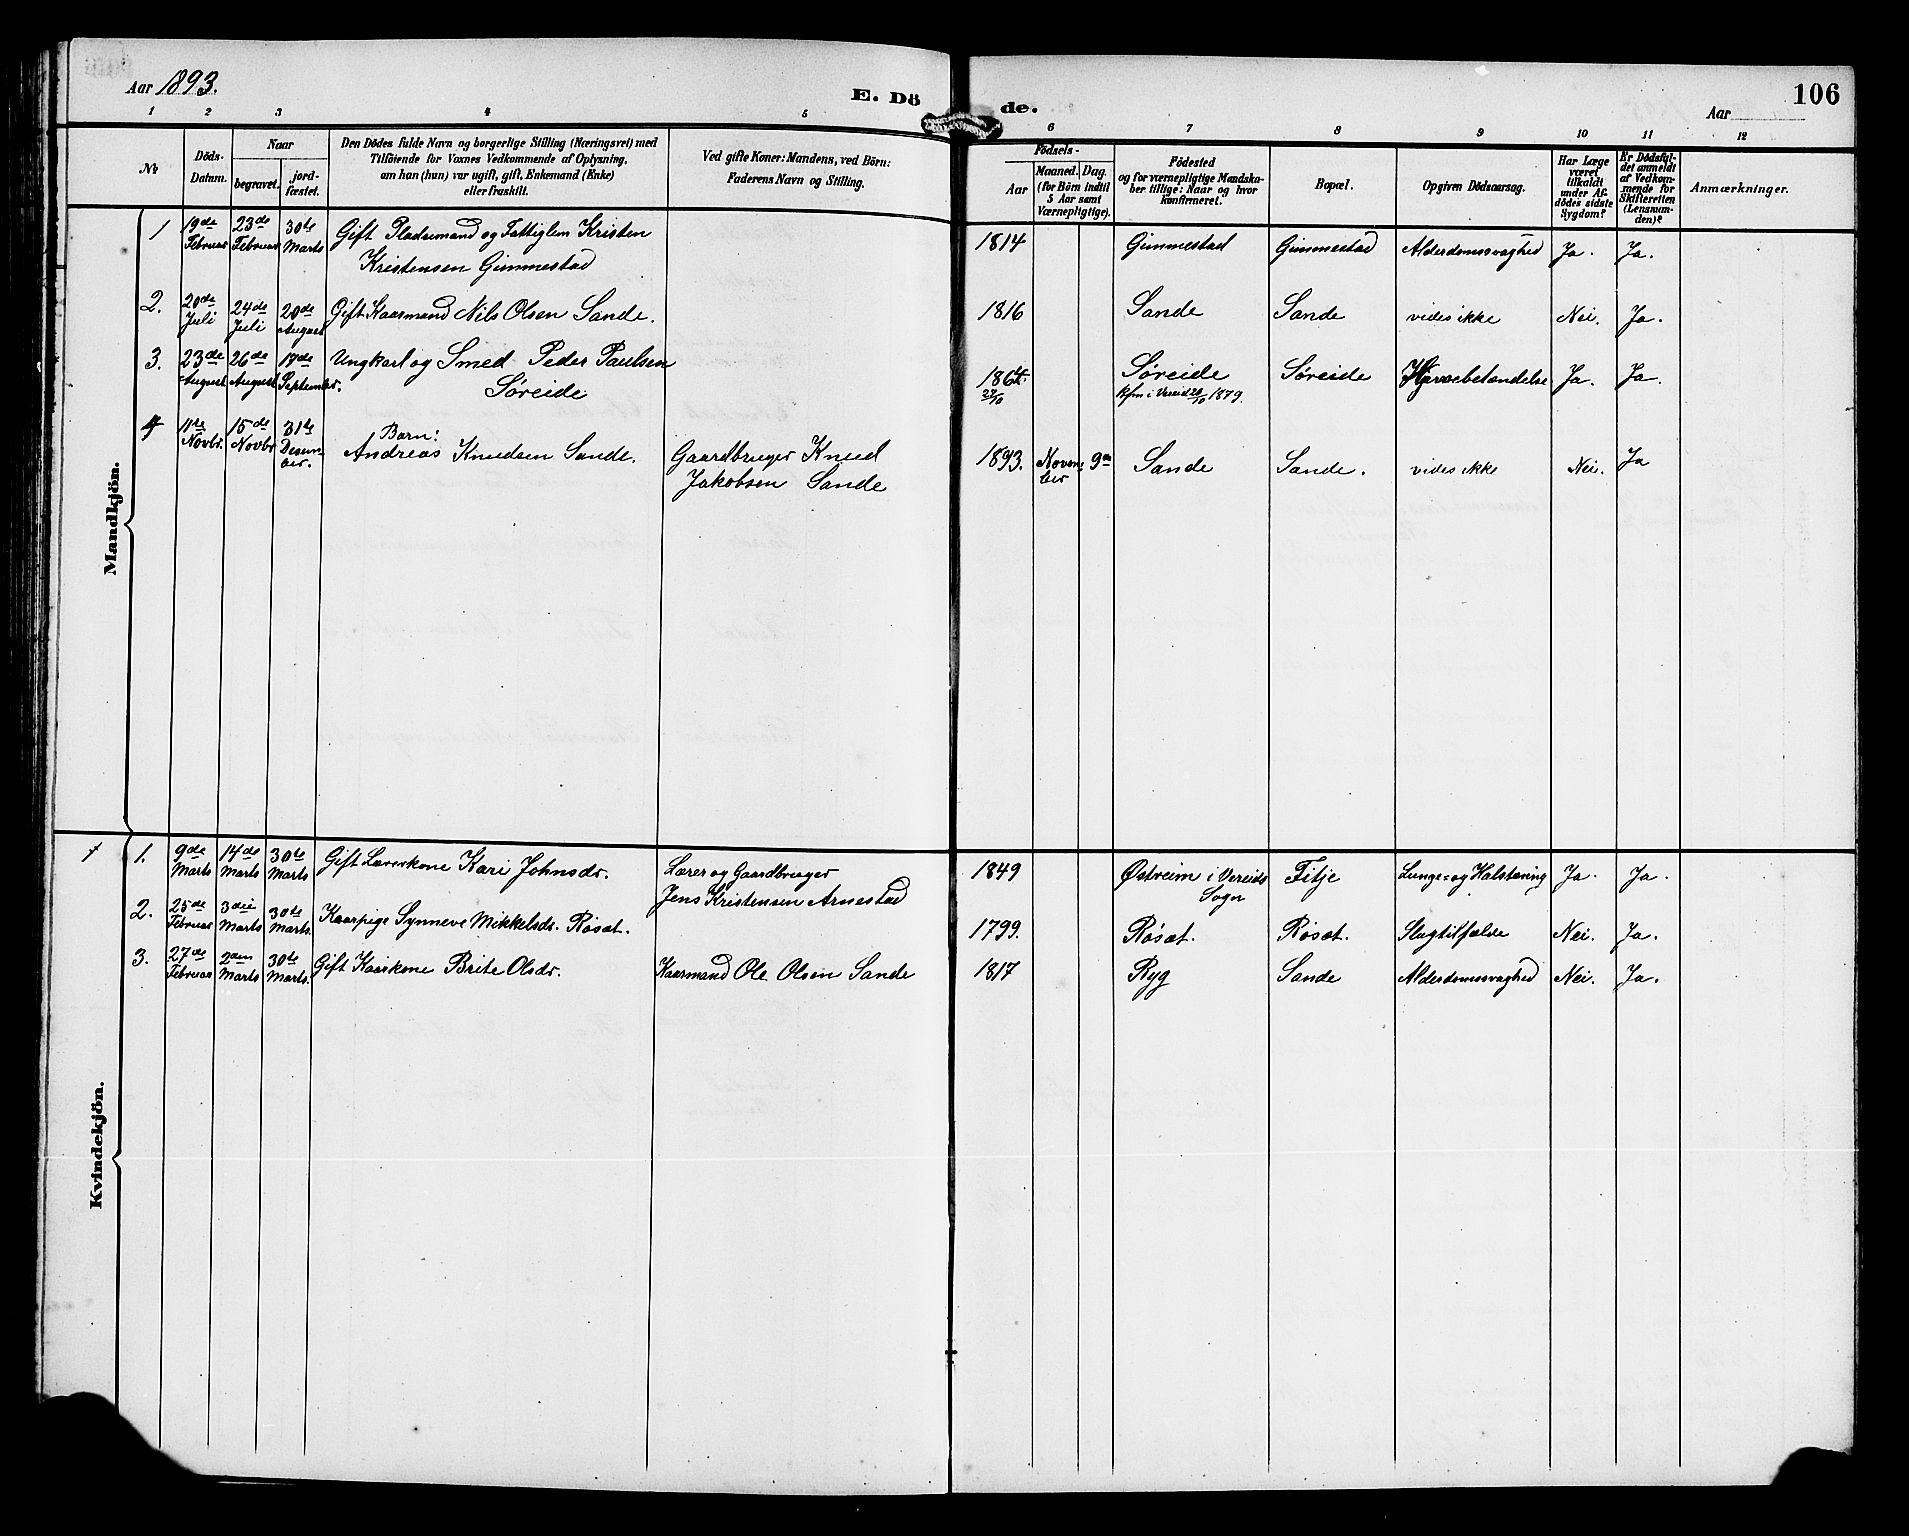 Aar 1893.
E. Dö
de.
Aar
106
1 2 3 4 5 6 7 8 9 10 11 12
No
Döds-
Datum.
Naar
begravet.
jord-
fæstet.
Den Dödes fulde Navn og borgerlige Stilling (Næringsvei) med
Tilföiende for Voxnes Vedkommende af Oplysning,
om han (hun) var ugift, gift, Enkemand (Enke)
eller fraskilt.
Ved gifte Koner: Mandens, ved Börn:
Faderens Navn og Stilling.
Födsels-
Aar
Maaned. Dag.
(for Börn indtil
5 Aar samt
Værnepligtige).
Födested
og for værnepligtige Mandska-
ber tillige: Naar og hvor
konfirmeret.
Bopæl.
Opgiven Dödsaarsag.
Har Læge
været
tilkaldt
under Af-
dödes sidste
Sygdom?
Er Dödsfal-
det anmeldt
af Vedkom-
mende for
Skifteretten
(Lensman-
den)?
Anmærkninger.
Mandkjön.
1 19de Februar 23de Februar 30te Marts Gift Pladsemand og Fattiglem Kristen
Kristensen Gimmestad
1814 Gimmestad Gimmestad Alderdomssvaghed Ja. Ja.
2. 20de Juli 24de Juli 20de August Gift Kaarmand Nils Olsen Sande.
1816 Sande Sande vides ikke Nei. Ja.
3. 23de August 26de August 17de September. Ungkarl og Smed Peder Paulsen
Søreide
1864 27/10 Søreide Søreide Ja. Ja.
kfm i Vereid 26/10 1879.
4 11te Novbr. 15de Novbr 31te Desember. Barn:
Andreas Knudsen Sande. Gaardbruger Knud
Jakobsen Sande
1893. November 9de Sande Sande. vides ikke Nei. Ja
Kvindekjön.
1 1. 9de Marts 14de Marts 30te Marts Gift Lærerkone Kari Johnsdr. Lærer og Gaardbruger
Jens Kristensen Arnestad
1849 Østreim i Vereids
Sogn
Fitje Lunge- og Halstæring Ja. Ja.
2. 25de Februar 3die Marts 30te Marts. Kaarpige Synneve Mikkelsdr. Røsæt.
1799. Røsæt. Røsæt. Slagtilfælde Nei. Ja.
3. 27de Februar 2den Marts 30te Marts. Gift Kaarkone Brite Olsdr. Kaarmand Ole Olsen Sande
1817 Ryg Sande Alderdomssvaghed Nei. Ja.